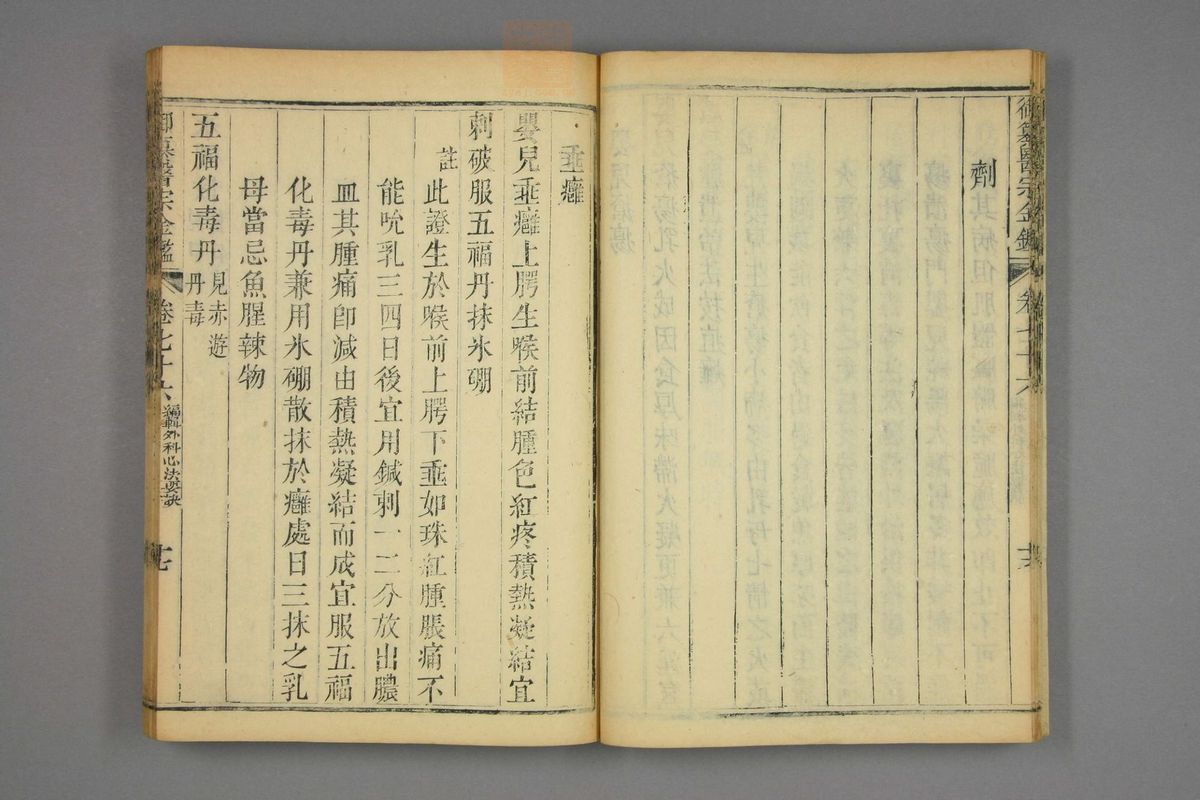 御纂醫宗金鑑
卷七十六
劑
垂癰
嬰兒垂癰上腭生喉前結腫色紅疼積熱凝結宜
刺破服五福丹抹氷硼
註此證生於喉前上腭下垂如珠紅腫脹痛不
能吮乳三四日後宜用鍼刺一二分放出膿
血其腫痛卽減由積熱凝結而成宜服五福
化毒丹兼用氷硼散抹於癰處日三抹之乳
母當忌魚腥辣物
五福化毒丹見赤遊丹毒
御纂醫宗金鑑
卷七十六
編輯外科心法要訣
七